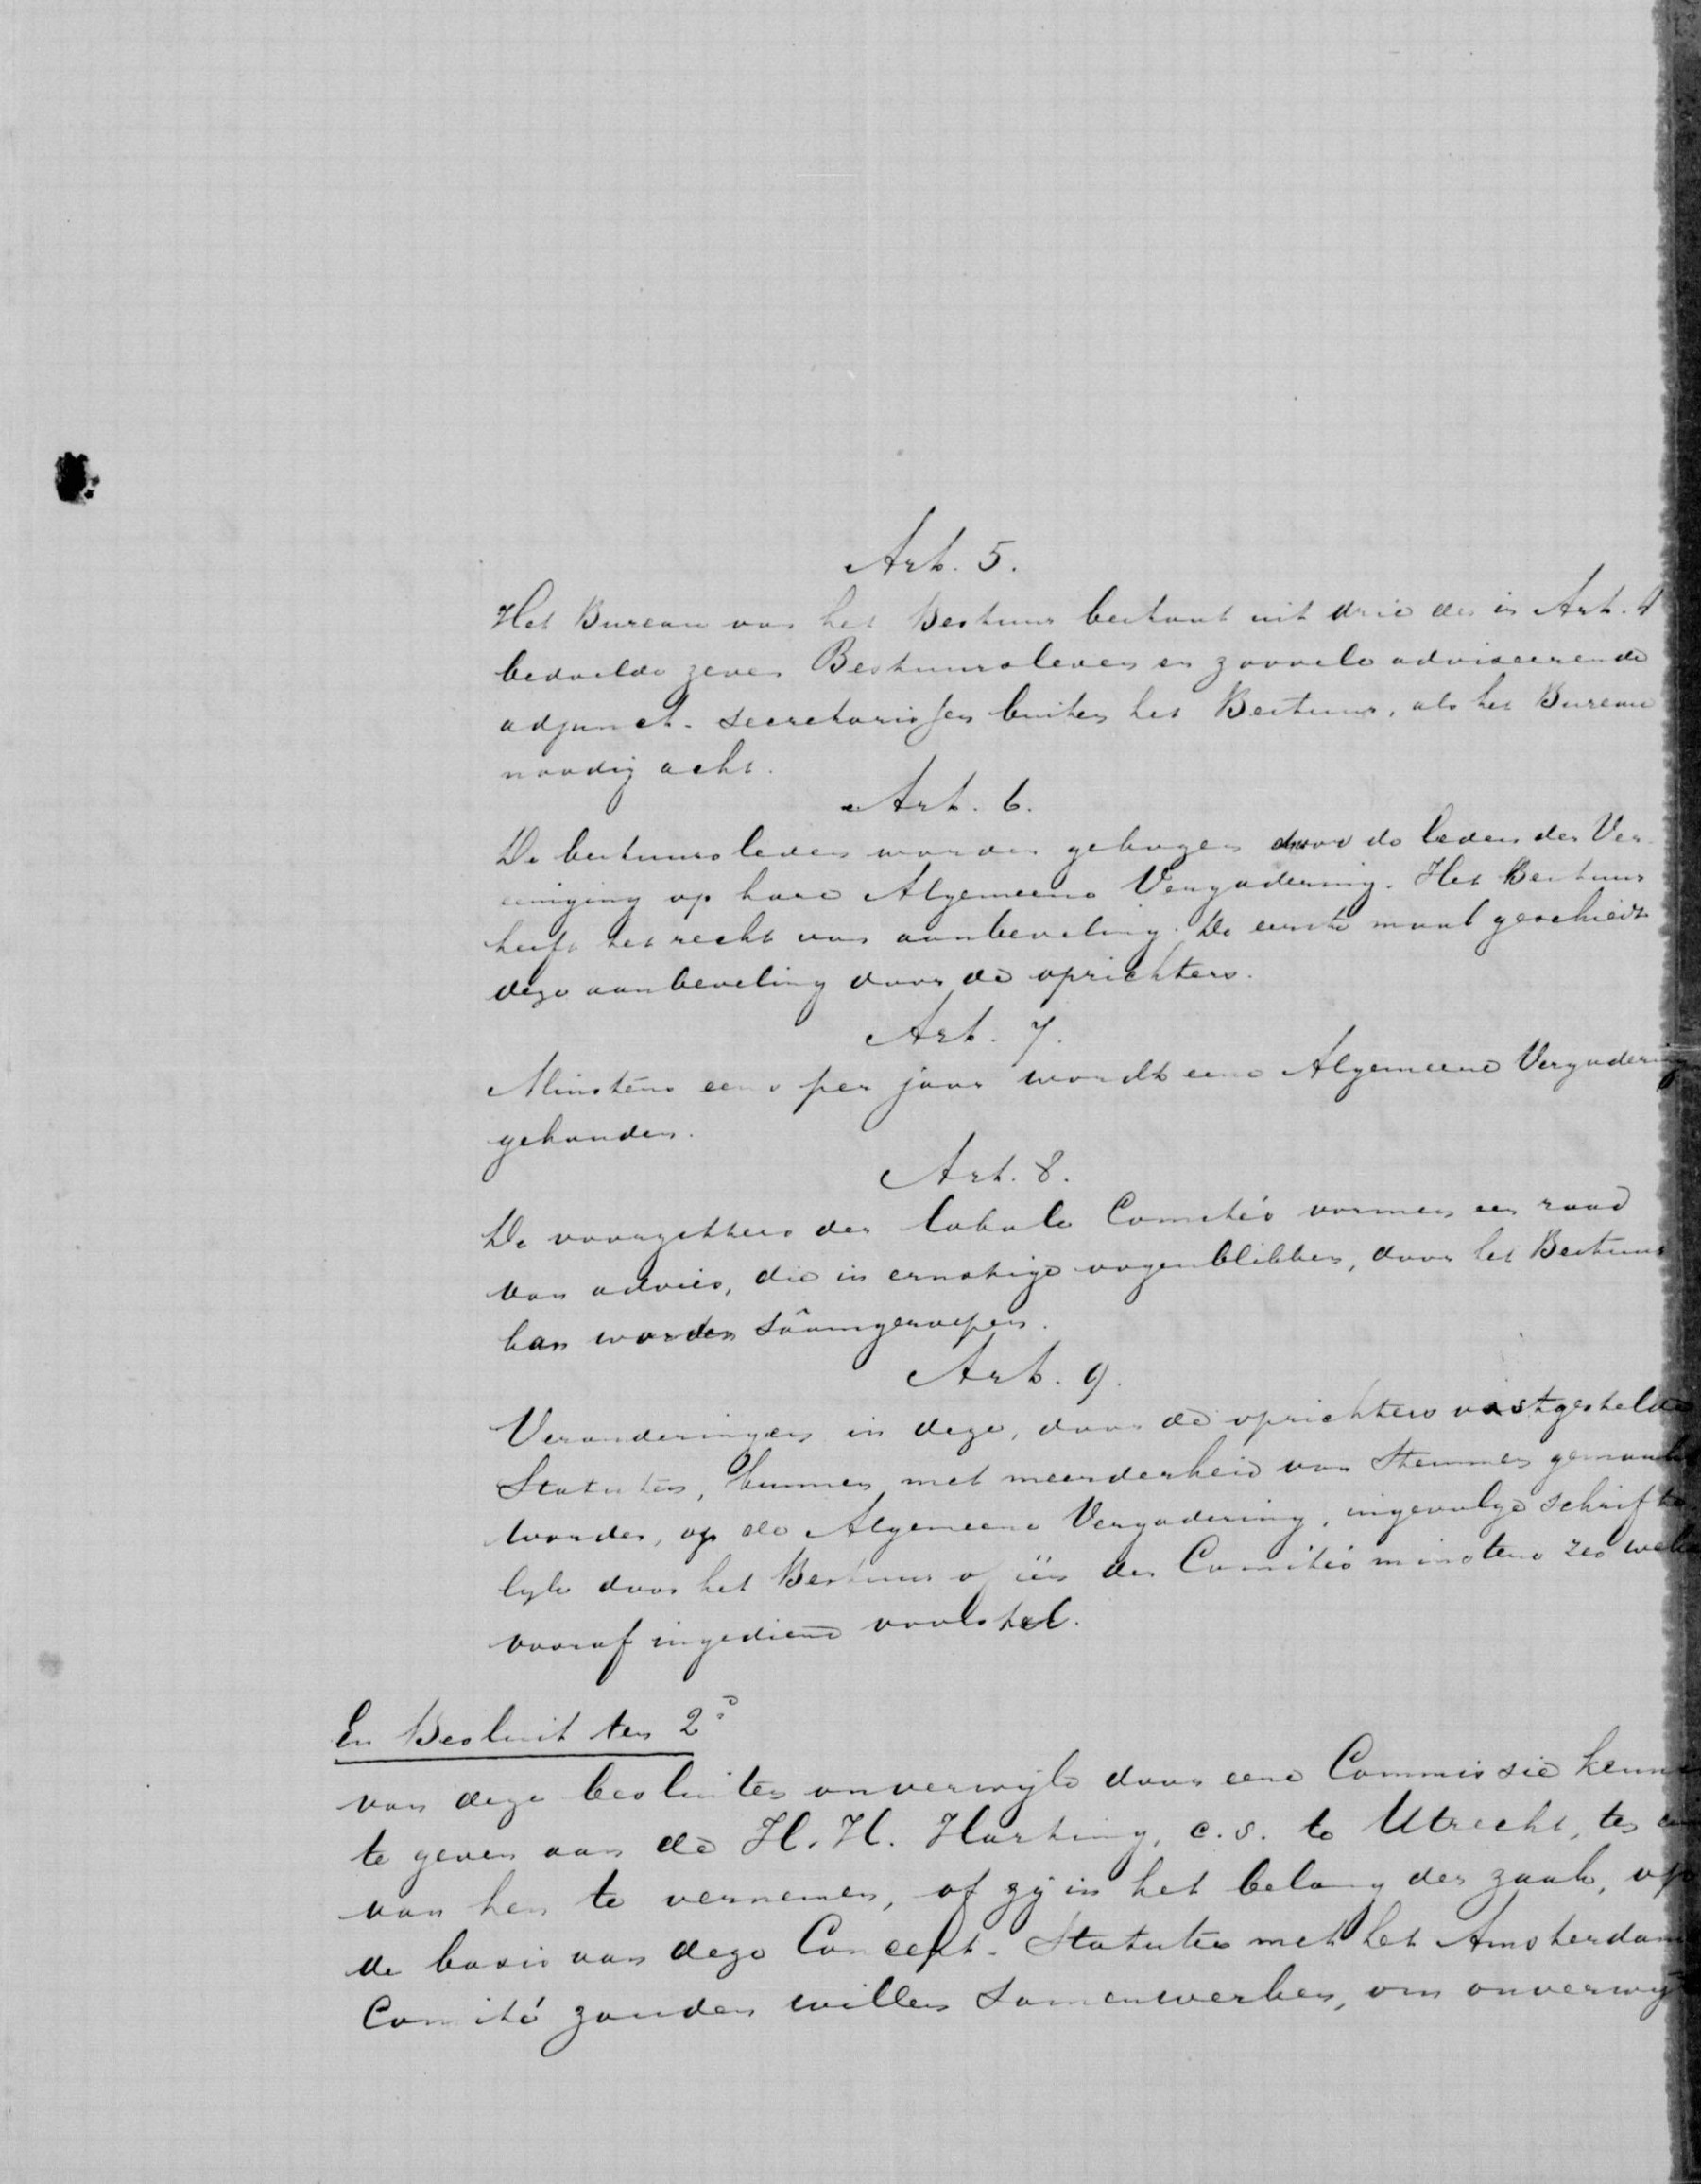 Art. 5.
Het Bureau van het Bestuur bestaat uit drie der in Art. 4
bedoelde zeven Bestuursleden en zoovele adviseerende
adjunct-secretarissen buiten het Bestuur, als het Bureau
noodig acht.
Art. 6.
De bestuursleden worden gekozen door de leden der Ver-
eeniging op hare Algemeene Vergadering. Het Bestuur
heeft het recht van aanbeveling. De eerste maal geschiedt
deze aanbeveling door de oprichters.
Art. 7.
Minstens eens per jaar wordt eene Algemeene Vergadering
gehouden.
Art. 8.
De voorzitters der lokale Comités vormen een raad
van advies, die in ernstige oogenblikken, door het Bestuur
kan worden sâamgeroepen.
Art. 9.
Veranderingen in deze, door de oprichters vastgestelde
Statuten, kunnen met meerderheid van Stemmen gemaakt
worden, op de Algemeene Vergadering, ingevolge schrifte-
lyk door het Bestuur of één der Comités minstens zes weken
vooraf ingediend voorstel.
En Besluit ten 2°
van deze besluiten onverwijld door eene Commissie kennis
te geven aan de H.H. Harting, c.s. te Utrecht, ten
van hen te vernemen, of zij in het belang der zaak, op
de basis van deze Concept-Statuten met het Amsterdam
Comité zouden willen samenwerken, om onverwij